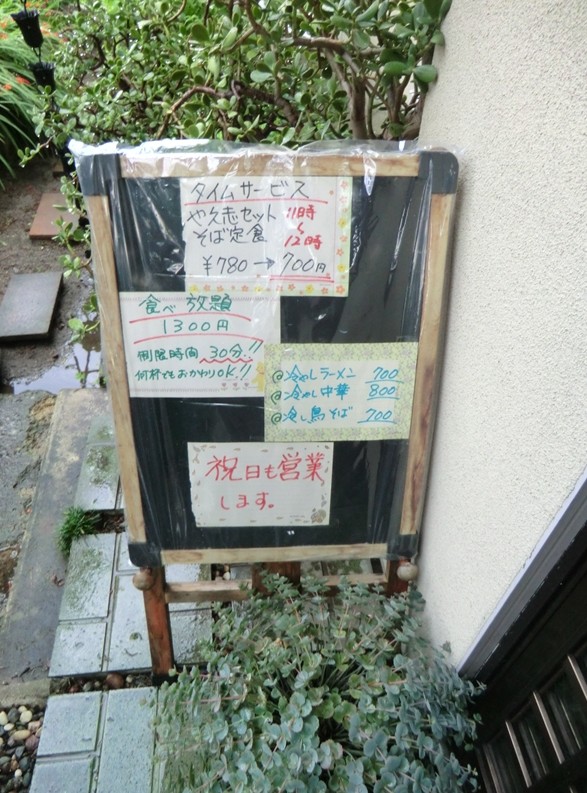 タイムサービス
や久志セット 11時
〜
そば定食 12時
¥780→700円
食べ放題
1300円
制限時間 30分!!
何杯でもおかわりOK!!
@冷やしラーメン 700
@冷やし中華 800
@冷し鳥そば 700
祝日も営業
します。